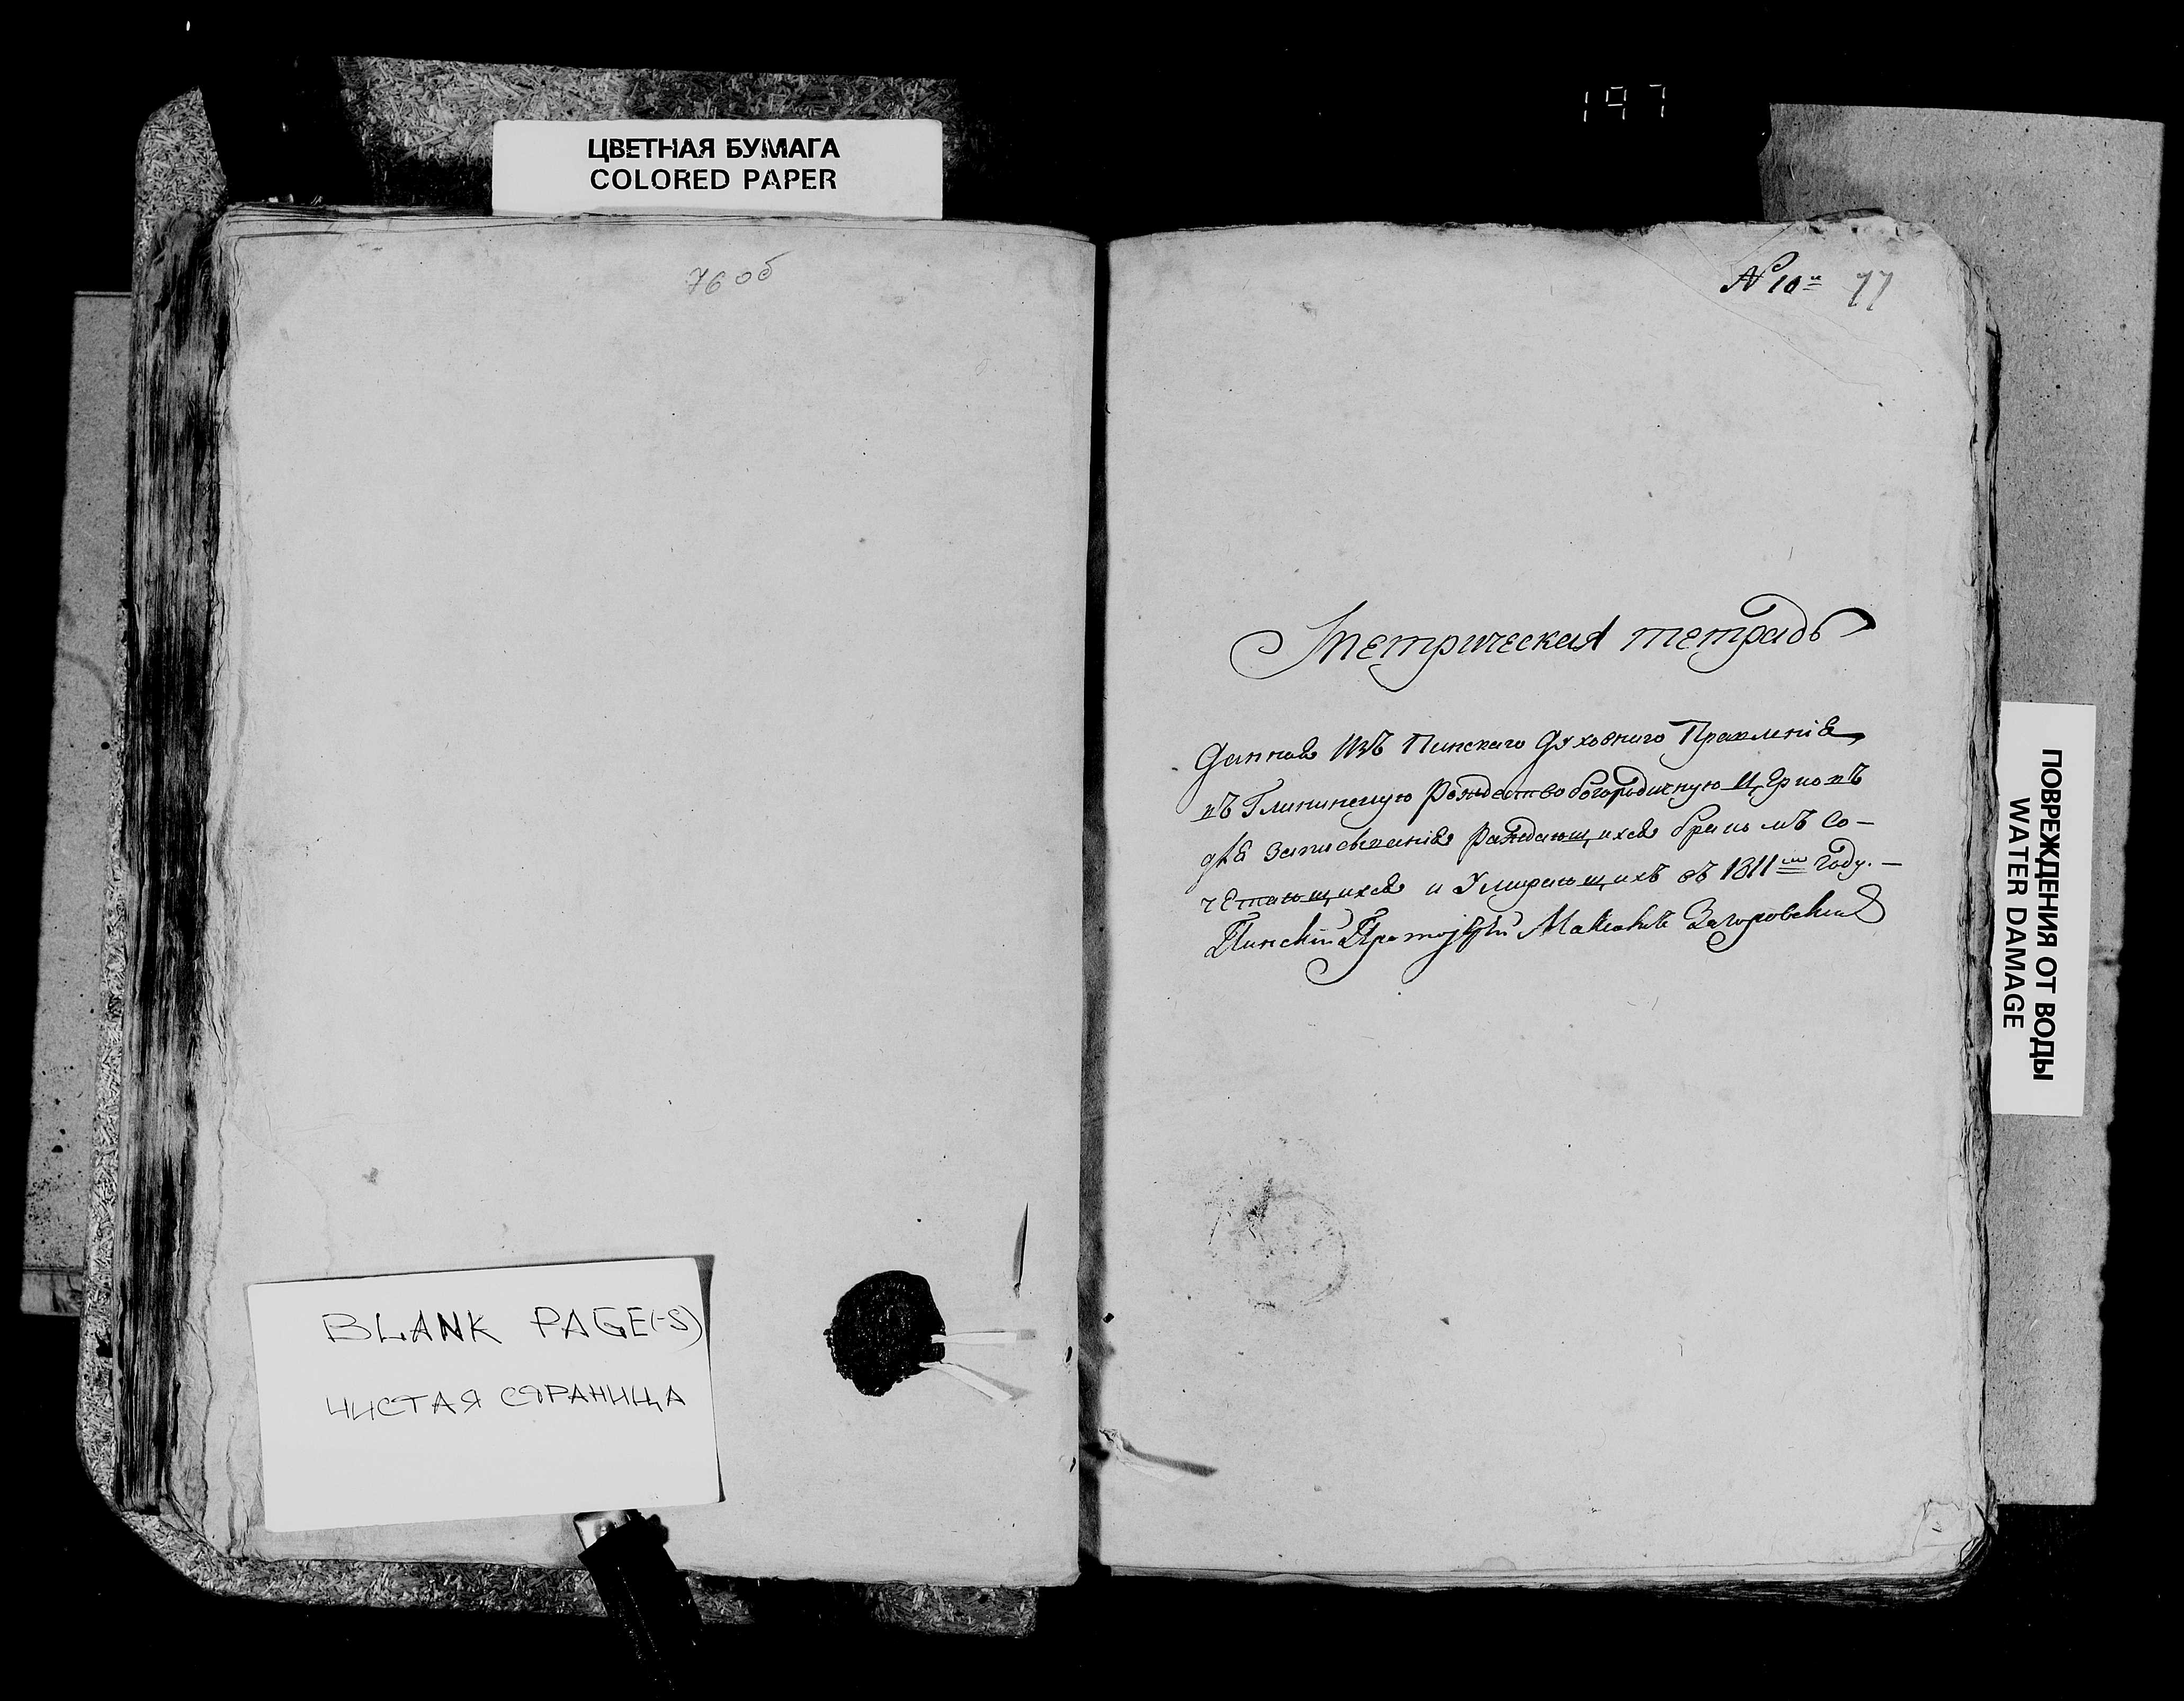 197
ЦВЕТНАЯ БУМАГА
COLORED PAPER
76 об
№ 10й 77
Метрическая тетрадь
Данная изъ Пинскаго Духовнаго Правленія
въ Глининскую Рождествобогородичную церковь
для записыванія раждающихся бракомъ со-
четающихся и умирающихъ въ 1811мъ году.—
Пинскій Протоіерей Загоровскій
BLANK PAGE(-S)
ЧИСТАЯ СТРАНИЦА
ПОВРЕЖДЕНИЯ ОТ ВОДЫ
WATER DAMAGE